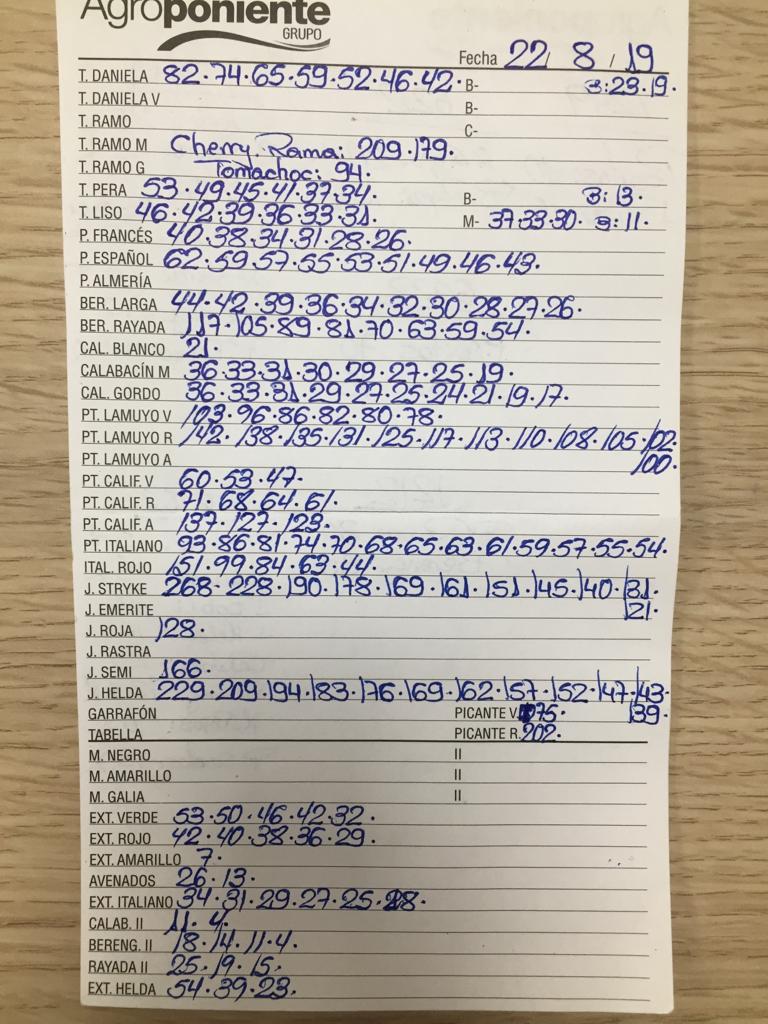 Agroponiente
GRUPO
Fecha 22/ 8 / 19
T. DANIELA 82·74·65·59·52·46·42· B- B:23·19·
T. DANIELA V B-
T. RAMO C-
T. RAMO M Cherry Rama: 209·179·
T. RAMO G Tomachoc: 94·
T. PERA 53·49·45·41·37·34· B- B: 13·
T. LISO 46·42·39·36·33·31· M- 37·33·30· B:11·
P. FRANCÉS 40·38·34·31·28·26·
P. ESPAÑOL 62·59·57·55·53·51·49·46·43·
P. ALMERÍA
BER. LARGA 44·42·39·36·34·32·30·28·27·26·
BER. RAYADA 117·105·89·81·70·63·59·54·
CAL. BLANCO 21·
CALABACÍN M 36·33·31·30·29·27·25·19·
CAL. GORDO 36·33·31·29·27·25·24·21·19·17·
PT. LAMUYO V 103·96·86·82·80·78·
PT. LAMUYO R 142·138·135·131·125·117·113·110·108·105·102·
PT. LAMUYO A 100·
PT. CALIF. V 60·53·47·
PT. CALIF. R 71·68·64·61·
PT. CALIF. A 137·127·123·
PT. ITALIANO 93·86·81·74·70·68·65·63·61·59·57·55·54·
ITAL. ROJO 151·99·84·63·44·
J. STRYKE 268·228·190·178·169·161·151·145·140·131·
J. EMERITE 121·
J. ROJA 128·
J. RASTRA
J. SEMI 166·
J. HELDA 229·209·194·183·176·169·162·157·152·147·143·
GARRAFÓN PICANTE V. 75· 139·
TABELLA PICANTE R. 202·
M. NEGRO II
M. AMARILLO II
M. GALIA II
EXT. VERDE 53·50·46·42·32·
EXT. ROJO 42·40·38·36·29·
EXT. AMARILLO 7·
AVENADOS 26·13·
EXT. ITALIANO 34·31·29·27·25·18·
CALAB. II 11·4·
BERENG. II 18·14·11·4·
RAYADA II 25·19·15·
EXT. HELDA 54·39·23·